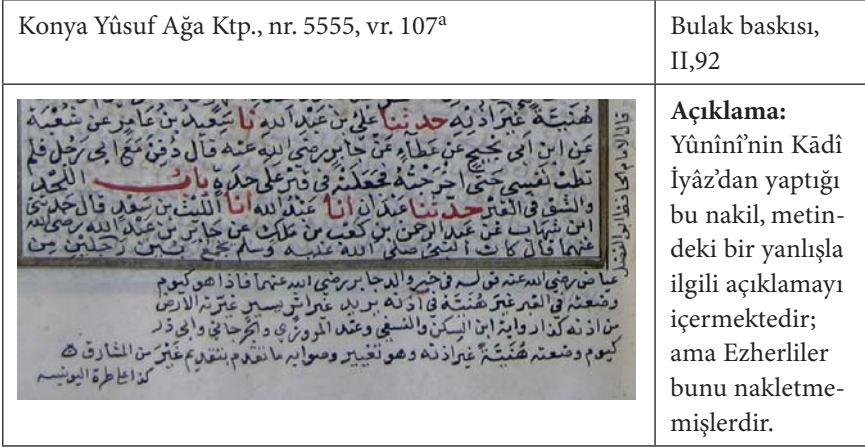 Konya Yûsuf Ağa Ktp., nr. 5555, vr. 107ᵃ
Bulak baskısı,
II,92
هُنَيَّةً غَيْرَ أُذُنِهِ حدثنا عَلِيُّ بْنُ عَبْدِ اللهِ نا سَعِيدُ بْنُ عَامِرٍ عَنْ شُعْبَةَ
عَنِ ابْنِ أَبِي نَجِيحٍ عَنْ عَطَاءٍ عَنْ جَابِرٍ رَضِيَ اللهُ عَنْهُ قَالَ دُفِنَ مَعَ أَبِي رَجُلٌ فَلَمْ
تَطِبْ نَفْسِي حَتَّى أَخْرَجْتُهُ فَجَعَلْتُهُ فِي قَبْرٍ عَلَى حِدَةٍ باب اللَّحْدِ
وَالشَّقِّ فِي الْقَبْرِ حدثنا عَبْدَانُ انا عَبْدُ اللهِ انا اللَّيْثُ بْنُ سَعْدٍ قَالَ حَدَّثَنِي
ابْنُ شِهَابٍ عَنْ عَبْدِ الرَّحْمَنِ بْنِ كَعْبِ بْنِ مَالِكٍ عَنْ جَابِرِ بْنِ عَبْدِ اللهِ رَضِيَ اللهُ
عَنْهُمَا قَالَ كَانَ النَّبِيُّ صَلَّى اللهُ عَلَيْهِ وَسَلَّمَ يَجْمَعُ بَيْنَ رَجُلَيْنِ مِنْ
قال الامام الحافظ ابو الفضل
عياض رضى الله عنه قوله فى خبر والد جابر رضى الله عنهما فاذا هو كيوم
وضعته فى القبر غير هُنَيَّة فى اذنه يريد غير اثر يسير غيرته الارض
من اذنه كذا رواية ابن السكن والنسفي وعند المروزي والجرجاني وابي ذر
كيوم وضعته هُنَيَّةً غير اذنه وهو تغيير وصوابه ما تقدم بتقديم غَيْر من المشارق
كذا على طرة اليونينية
Açıklama:
Yûnînî’nin Kādî
İyâz’dan yaptığı
bu nakil, metin-
deki bir yanlışla
ilgili açıklamayı
içermektedir;
ama Ezherliler
bunu nakletme-
mişlerdir.